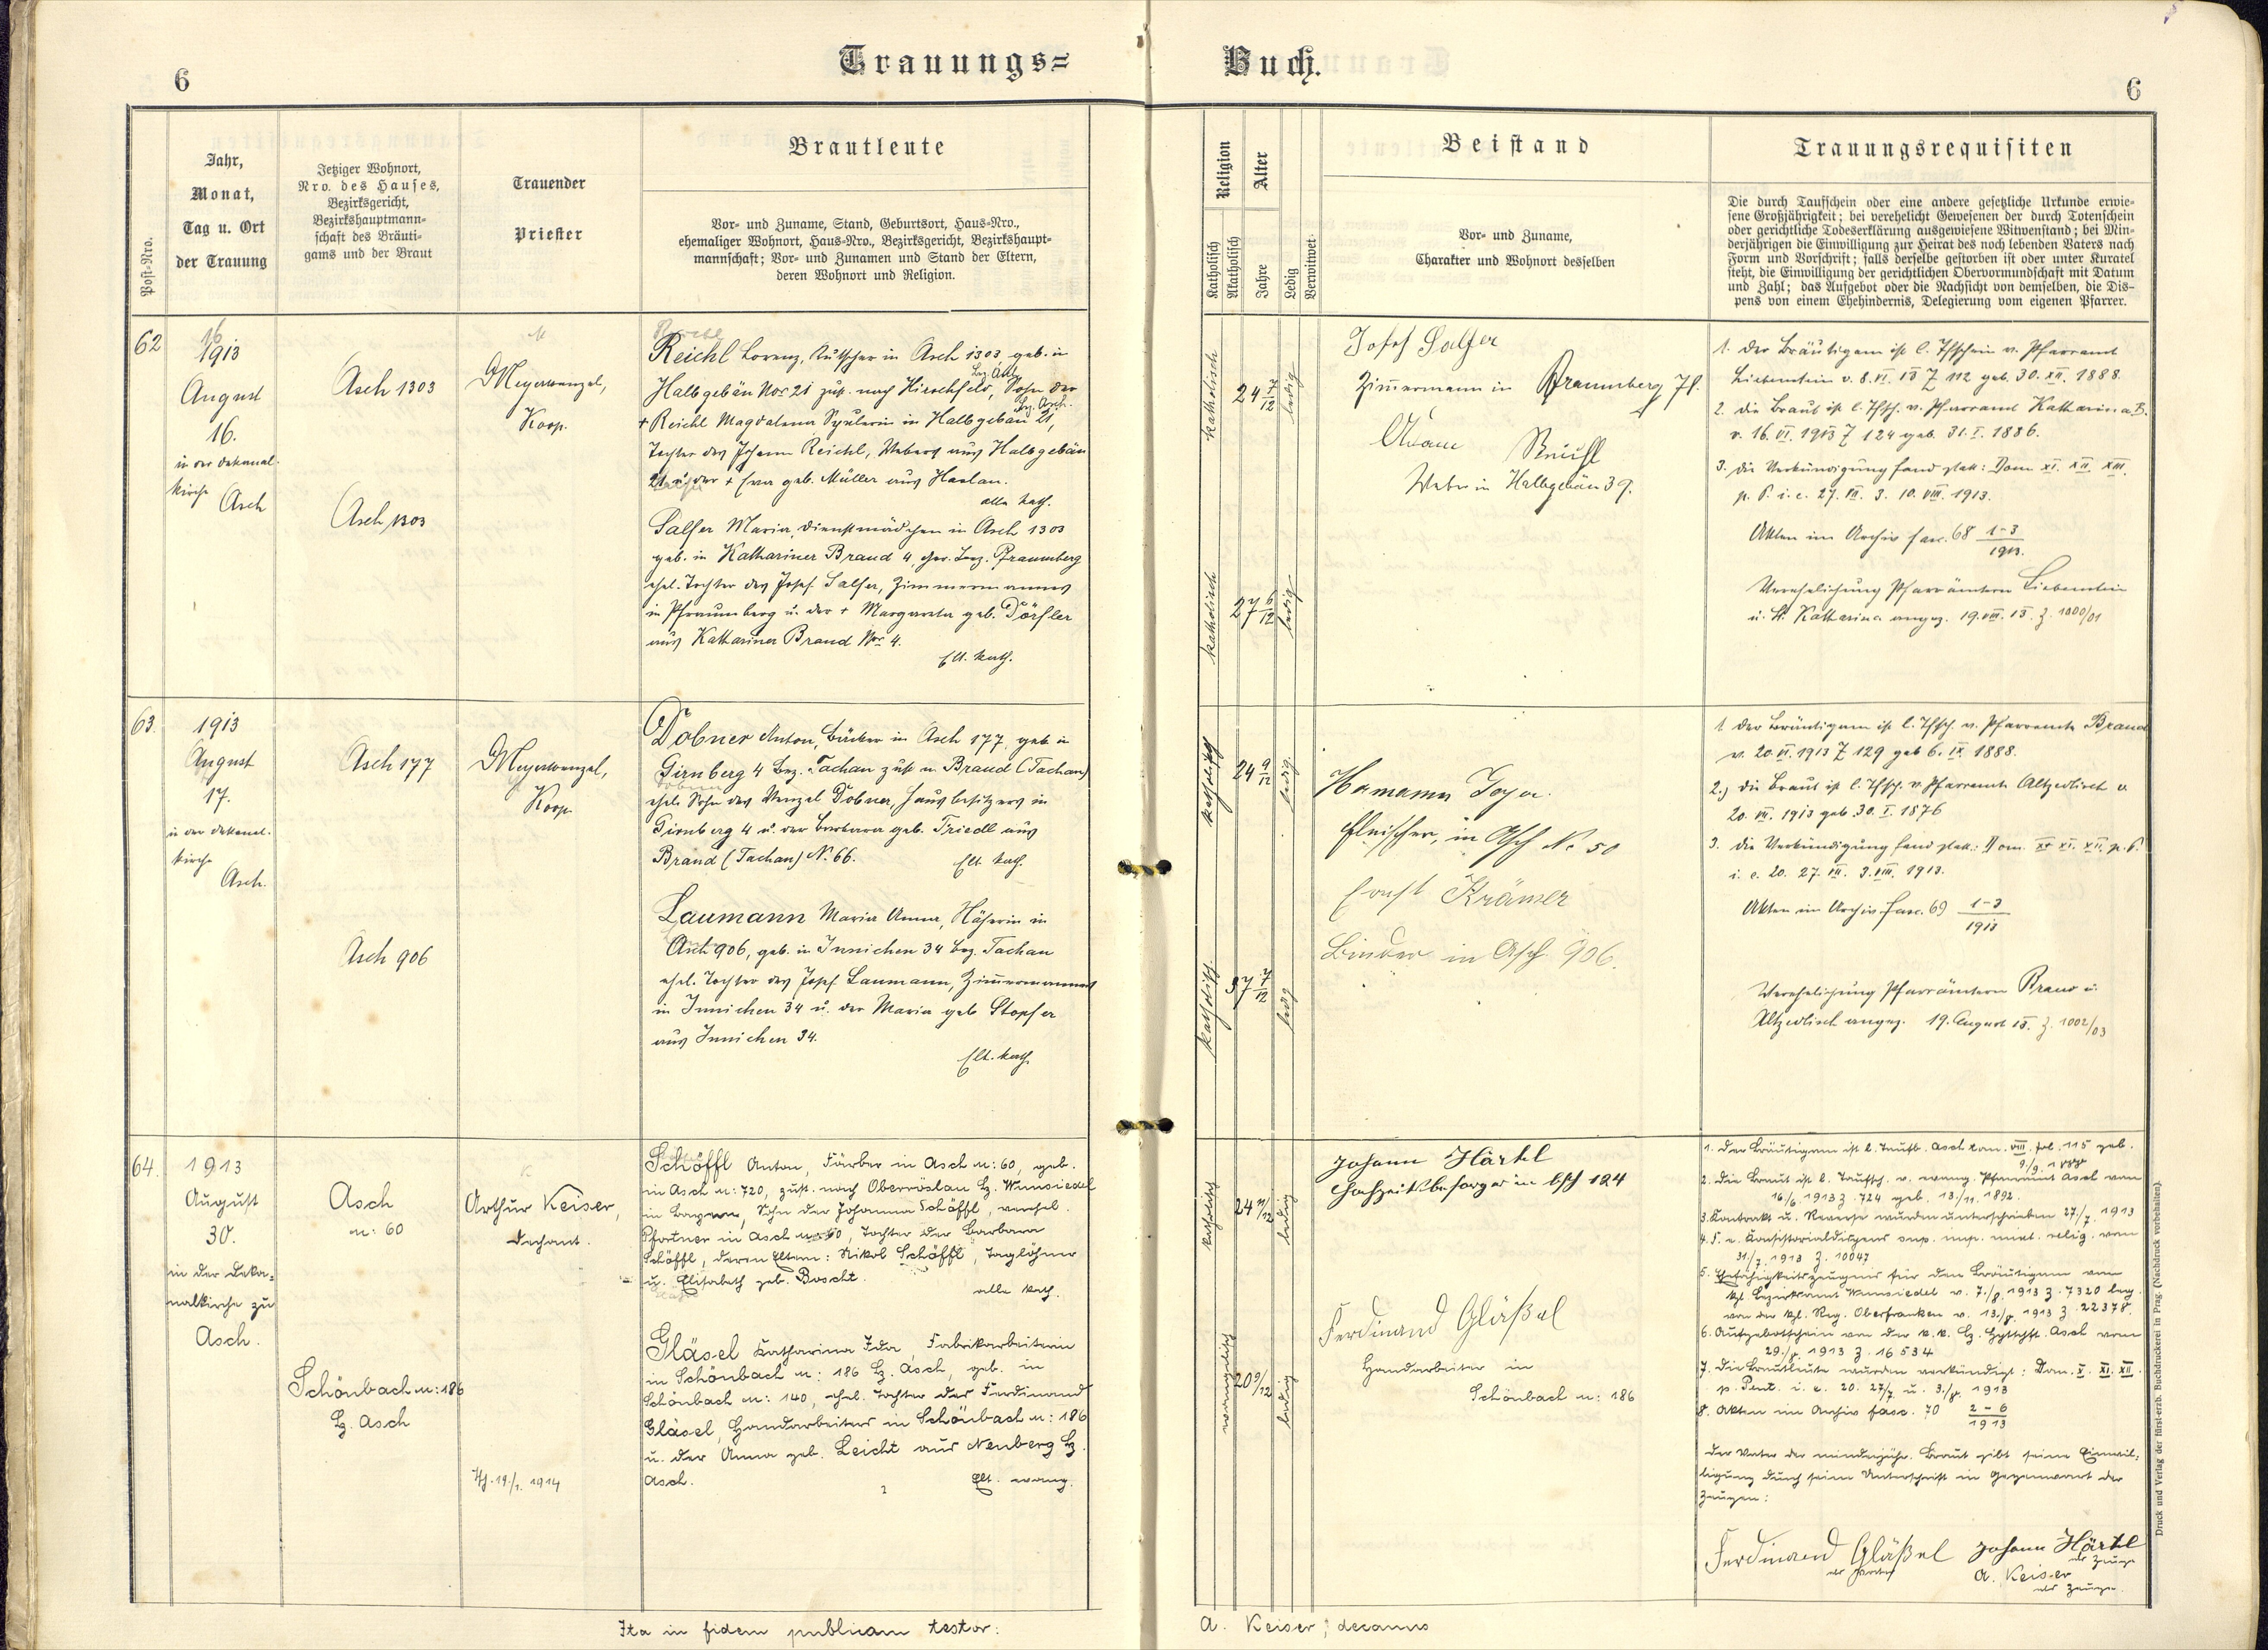 6
Trauungs=
Buch.
6
Post-Nro.
Jahr,
Monat,
Tag u. Ort
der Trauung
Jetziger Wohnort,
Nro. des Hauses,
Bezirksgericht,
Bezirkshauptmann-
schaft des Bräuti-
gams und der Braut
Trauender
Priester
Brautleute
Vor- und Zuname, Stand, Geburtsort, Haus-Nro.,
ehemaliger Wohnort, Haus-Nro., Bezirksgericht, Bezirkshaupt-
mannschaft; Vor- und Zunamen und Stand der Eltern,
deren Wohnort und Religion.
Religion
Katholisch
Akatholisch
Alter
Jahre
Ledig
Verwitwet
Beistand
Vor- und Zuname,
Charakter und Wohnort desselben
Trauungsrequisiten
Die durch Taufschein oder eine andere gesetzliche Urkunde erwie-
sene Großjährigkeit; bei verehelicht Gewesenen der durch Totenschein
oder gerichtliche Todeserklärung ausgewiesene Witwenstand; bei Min-
derjährigen die Einwilligung zur Heirat des noch lebenden Vaters nach
Form und Vorschrift; falls derselbe gestorben ist oder unter Kuratel
steht, die Einwilligung der gerichtlichen Obervormundschaft mit Datum
und Zahl; das Aufgebot oder die Nachsicht von demselben, die Dis-
pens von einem Ehehindernis, Delegierung vom eigenen Pfarrer.
62
1913
August
16.
in der Dekanal-
kirche
Asch
Asch 1303
Asch 1303
Meyerwenzel,
Koop.
Reichl Lorenz, Kutscher in Asch 1303, geb. in
Halbgebäu Nro 21 zust. nach Hirschfeld, Sohn der
+ Reichl Magdalena Spulerin in Halbgebäu 21, bz. Asch.
Tochter des Johann Reichl, Webers aus Halbgebäu
21 u. der + Eva geb. Müller aus Haslan.
alle kath.
Salfer Maria, Dienstmädchen in Asch 1303
geb. in Kathariner Brand 4, Ger. Bez. Pfraumberg
ehel. Tochter des Josef Salfer, Zimmermannes
in Pfraumberg u. der + Margareta geb. Dörfler
aus Katharina Brand Nro 4.
Elt. kath.
katholisch
24 7/12
ledig
katholisch
27 6/12
ledig
Josef Salfer
Zimmermann in Pfraumberg 71.
Adam Reichl
Weber in Halbgebäu 39.
1. Der Bräutigam ist l. Tfschein v. Pfarramt
Liebenstein v. 8. VI. 13 Z 112 geb. 30. XII. 1888.
2. die Braut ist l. Tfsch. v. Pfarramt Katharina B.
v. 16. VI. 1913 Z 124 geb. 31. I. 1886.
3. die Verkündigung fand statt: Dom XI. XII. XIII.
p. P. i. e. 27. VII. 3. 10. VIII. 1913.
Akten im Archiv fasc. 68 1-3/1913.
Verehelichung Pfarrämtern Liebenstein
u. St. Katharina angez. 19. VIII. 13. Z. 1000/01
63.
1913
August
17.
in der Dekanal-
kirche
Asch.
Asch 177
Asch 906
Meyerwenzel,
Koop.
Dobner Anton, Bäcker in Asch 177, geb. in
Girnberg 4 Bez. Tachau zust. n. Brand (Tachau)
ehel. Sohn des Wenzel Dobner, Hausbesitzers in
Girnberg 4 u. der Barbara geb. Friedl aus
Brand (Tachau) N. 66.
Elt. kath.
Laumann Maria Anna, Näherin in
Asch 906, geb. in Innichen 34 bez. Tachau
ehel. Tochter des Josef Laumann, Zimmermannes
in Innichen 34 u. der Maria geb. Stopfer
aus Innichen 34.
Elt. kath.
katholisch
24 9/12
ledig
katholisch
37 7/12
ledig
Hamann
Fleischer, in Asch No 50
Ernst Krämer
Binder in Asch 906.
1. der Bräutigam ist l. Tfsch. v. Pfarramte Brand
v. 20. VI. 1913 Z 129 geb. 6. IX. 1888.
2.) die Braut ist l. Tfsch. v. Pfarramte Altzedlisch v.
20. VII. 1913 geb. 30. I. 1876
3. die Verkündigung fand statt: Dom. X. XI. XII. p. P.
i. e. 20. 27. VII. 3. VIII. 1913.
Akten im Archiv fasc. 69 1-3/1913
Verehelichung Pfarrämtern Brand u.
Altzedlisch angez. 19. August 13. Z. 1002/03
64.
1913
August
30.
in der Deka-
nalkirche zu
Asch.
Asch
n: 60
Schönbach n: 186
Bz. Asch
Arthur Keiser,
Dechant.
19./1. 1914
Schöffl Anton, Färber in Asch n: 60, geb.
in Asch n: 720, zust. nach Oberröslau Bz. Wunsiedel
in Bayern, Sohn der Johanna Schöffl, verehel.
Pfortner in Asch n: 60, Tochter der Barbara
Schöffl, deren Eltern: Nikol Schöffl, Taglöhner
u. Elisabeth geb. Boscht.
alle kath.
Gläsel Katharina Ida, Fabrikarbeiterin
in Schönbach n: 186 Bz. Asch, geb. in
Schönbach n: 140, ehel. Tochter des Ferdinand
Gläsel, Handarbeiters in Schönbach n: 186
u. der Anna geb. Leicht aus Neuberg Bz.
Asch.
Elt. evang.
katholisch
24 11/12
ledig
evangelisch
20 9/12
ledig
Johann Härtl
Hochzeitsbesorger in Asch 124
Ferdinand Gläßel
Handarbeiter in
Schönbach n: 186
1. Der Bräutigam ist l. Taufb. Asch tom. VIII. fol. 115 geb.
9./9. 1888
2. Die Braut ist l. Taufsch. v. evang. Pfarramt Asch vom
16/6 1913 Z. 724 geb. 13./11. 1892.
3. Kontrakt u. Reverse wurden unterschrieben 27./7. 1913
4. F. e. Konsistorialdispens sup. imp. mixt. relig. vom
31./7. 1913 Z. 10047
5. Ehefähigkeitszeugnis für den Bräutigam vom
kgl. Bezirksamt Wunsiedel v. 7./8. 1913 Z. 7320 leg.
von der kgl. Reg. Oberfranken v. 13./8. 1913 Z. 22378.
6. Aufgebotschein von der k. k. Bz. Hptmschft. Asch vom
29./8. 1913 Z. 16534
7. Die Brautleute wurden verkündigt: Dom. X. XI. XII.
p. Pent. i. e. 20. 27/7. u. 3./8. 1913
8. Akten im Archiv fasc. 70 2-6/1913
Der Vater der minderjähr. Braut gibt seine Einwil-
ligung durch seine Unterschrift in Gegenwart der
Zeugen:
Ferdinand Gläßel
als Vater
Johann Härtl
als Zeuge
A. Keiser
als Zeuge.
Ita in fidem publicam testor:
A. Keiser, decanus
Druck und Verlag der fürst-erzb. Buchdruckerei in Prag. (Nachdruck vorbehalten).